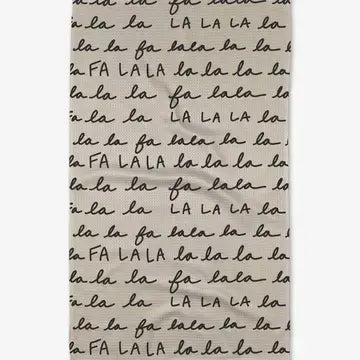 la la fa lala la
la la fa lala la l
la FA LA LA la la la la
la la la fa lala
fa la la LA LA LA la
la la fa lala la l
la FA LA LA la la la la
la la la fa lala
fa la la LA LA LA la
la la fa lala la l
la FA LA LA la la la la
la la la fa lala
fa la la LA LA LA la
la la fa lala la l